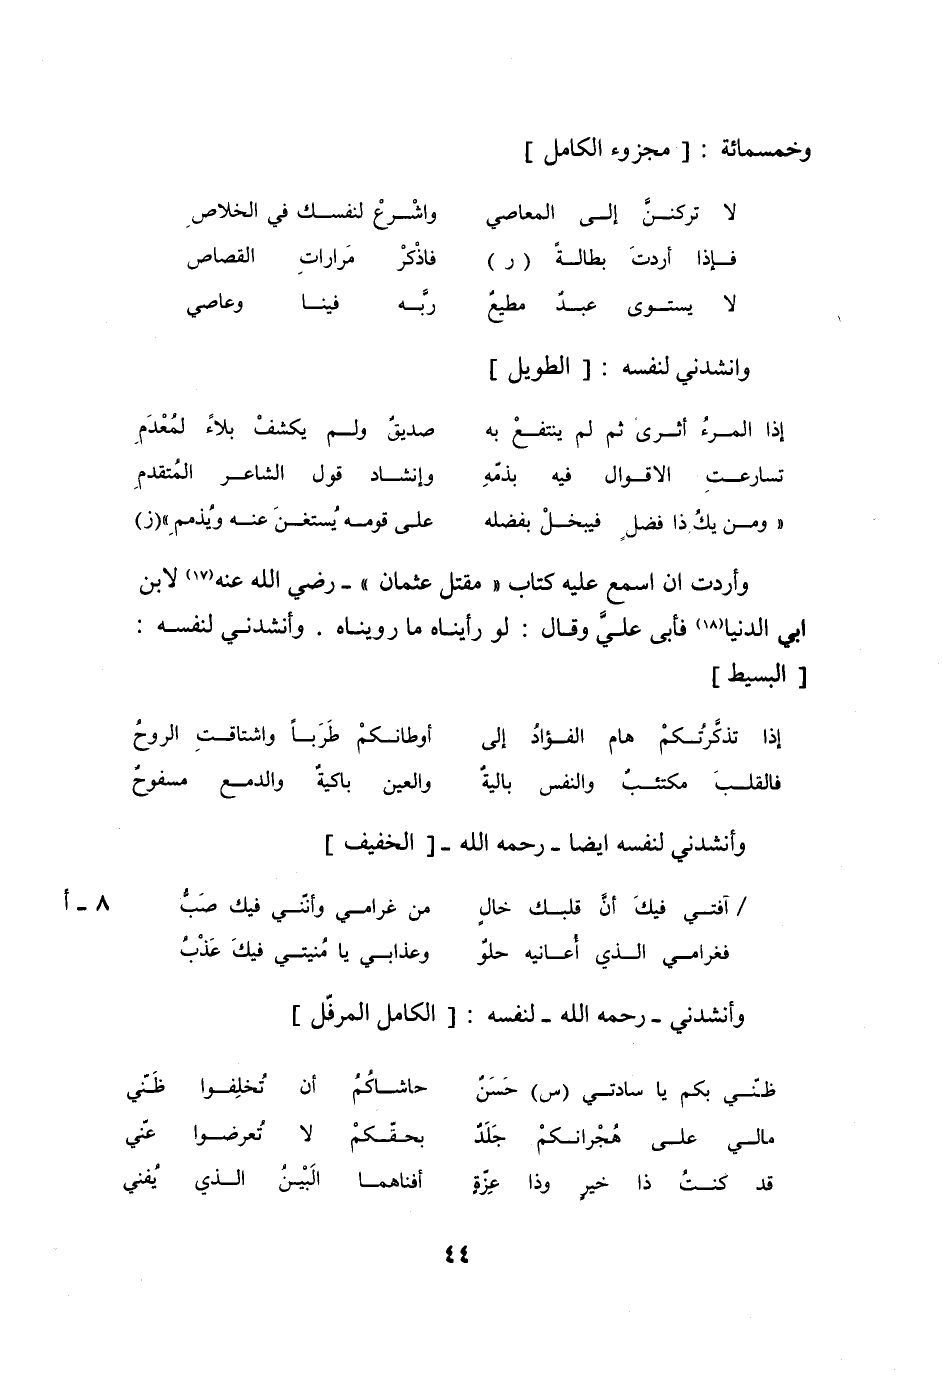 وخمسمائة : [ مجزوء الكامل ]
لا تركننَّ إلى المعاصي واشْرعْ لنفسك في الخلاصِ
فإذا أردتَ بطالةً ( ر ) فاذْكرْ مَراراتِ القصاص
لا يستوى عبدٌ مطيعٌ ربَّه فينا وعاصي
وانشدني لنفسه : [ الطويل ]
إذا المرءُ أثرى ثم لم ينتفعْ به صديقٌ ولم يكشفْ بلاءً لمُعْدَمِ
تسارعتِ الاقوال فيه بذمّهِ وإنشاد قول الشاعر المُتقدمِ
« ومن يكُ ذا فضلٍ فيبخلْ بفضله على قومه يُستغنَ عنه ويُذممِ »(ز)
وأردت ان اسمع عليه كتاب « مقتل عثمان » ـ رضي الله عنه(١٧) لابن
ابي الدنيا(١٨) فأبى عليَّ وقال : لو رأيناه ما رويناه . وأنشدني لنفسه :
[ البسيط ]
إذا تذكَّرتُكمْ هام الفؤادُ إلى أوطانكمْ طَرَباً واشتاقتِ الروحُ
فالقلبَ مكتئبٌ والنفس باليةٌ والعين باكيةٌ والدمع مسفوحُ
وأنشدني لنفسه ايضا ـ رحمه الله ـ [ الخفيف ]
/ آفتي فيكَ أنَّ قلبك خالٍ من غرامي وأنّني فيك صَبُّ ٨ ـ أ
فغرامي الذي أُعانيه حلوٌ وعذابي يا مُنيتي فيكَ عَذْبُ
وأنشدني ـ رحمه الله ـ لنفسه : [ الكامل المرفّل ]
ظنّي بكم يا سادتي (س) حَسَنٌ حاشاكُمُ أن تُخلِفوا ظَنّي
مالي على هُجْرانكمْ جَلَدٌ بحقّكمْ لا تُعرضوا عنّي
قد كنتُ ذا خيرٍ وذا عِزّةٍ أفناهما الَبْينُ الذي يُفني
٤٤